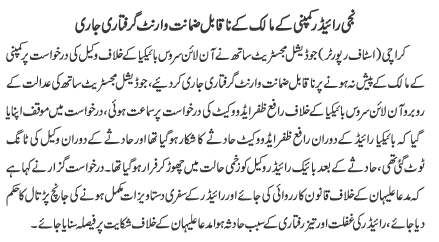 نجی رائیڈر کمپنی کے مالک کے ناقابل ضمانت وارنٹ گرفتاری جاری
کراچی (اسٹاف رپورٹر) جوڈیشل مجسٹریٹ ساتھ نے آن لائن سروس بائیکیا کے خلاف وکیل کی درخواست پر کمپنی
کے مالک کے پیش نہ ہونے پر ناقابل ضمانت وارنٹ گرفتاری جاری کردیئے، جوڈیشل مجسٹریٹ ساتھ کی عدالت کے
روبرو آن لائن سروس بائیکیا کے خلاف رافع ظفر ایڈووکیٹ کی درخواست پر سماعت ہوئی، درخواست میں موقف اپنایا
گیا کہ بائیکیا رائیڈ کے دوران رافع ظفر ایڈووکیٹ حادثے کا شکار ہوگیا تھا اور حادثے کے دوران وکیل کی ٹانگ
ٹوٹ گئی تھی، حادثے کے بعد بائیک رائیڈر وکیل کو زخمی حالت میں چھوڑ کر فرار ہوگیا تھا۔ درخواست گزار نے کہا ہے کہ
مدعا علیہان کے خلاف قانون کارروائی کی جائے اور رائیڈر کے سفری دستاویزات مکمل ہونے کی جانچ پڑتال کا حکم
دیا جائے، رائیڈر کی غفلت اور تیز رفتاری کے سبب حادثہ ہوا مدعا علیہان کے خلاف شکایت پر فیصلہ سنایا جائے۔